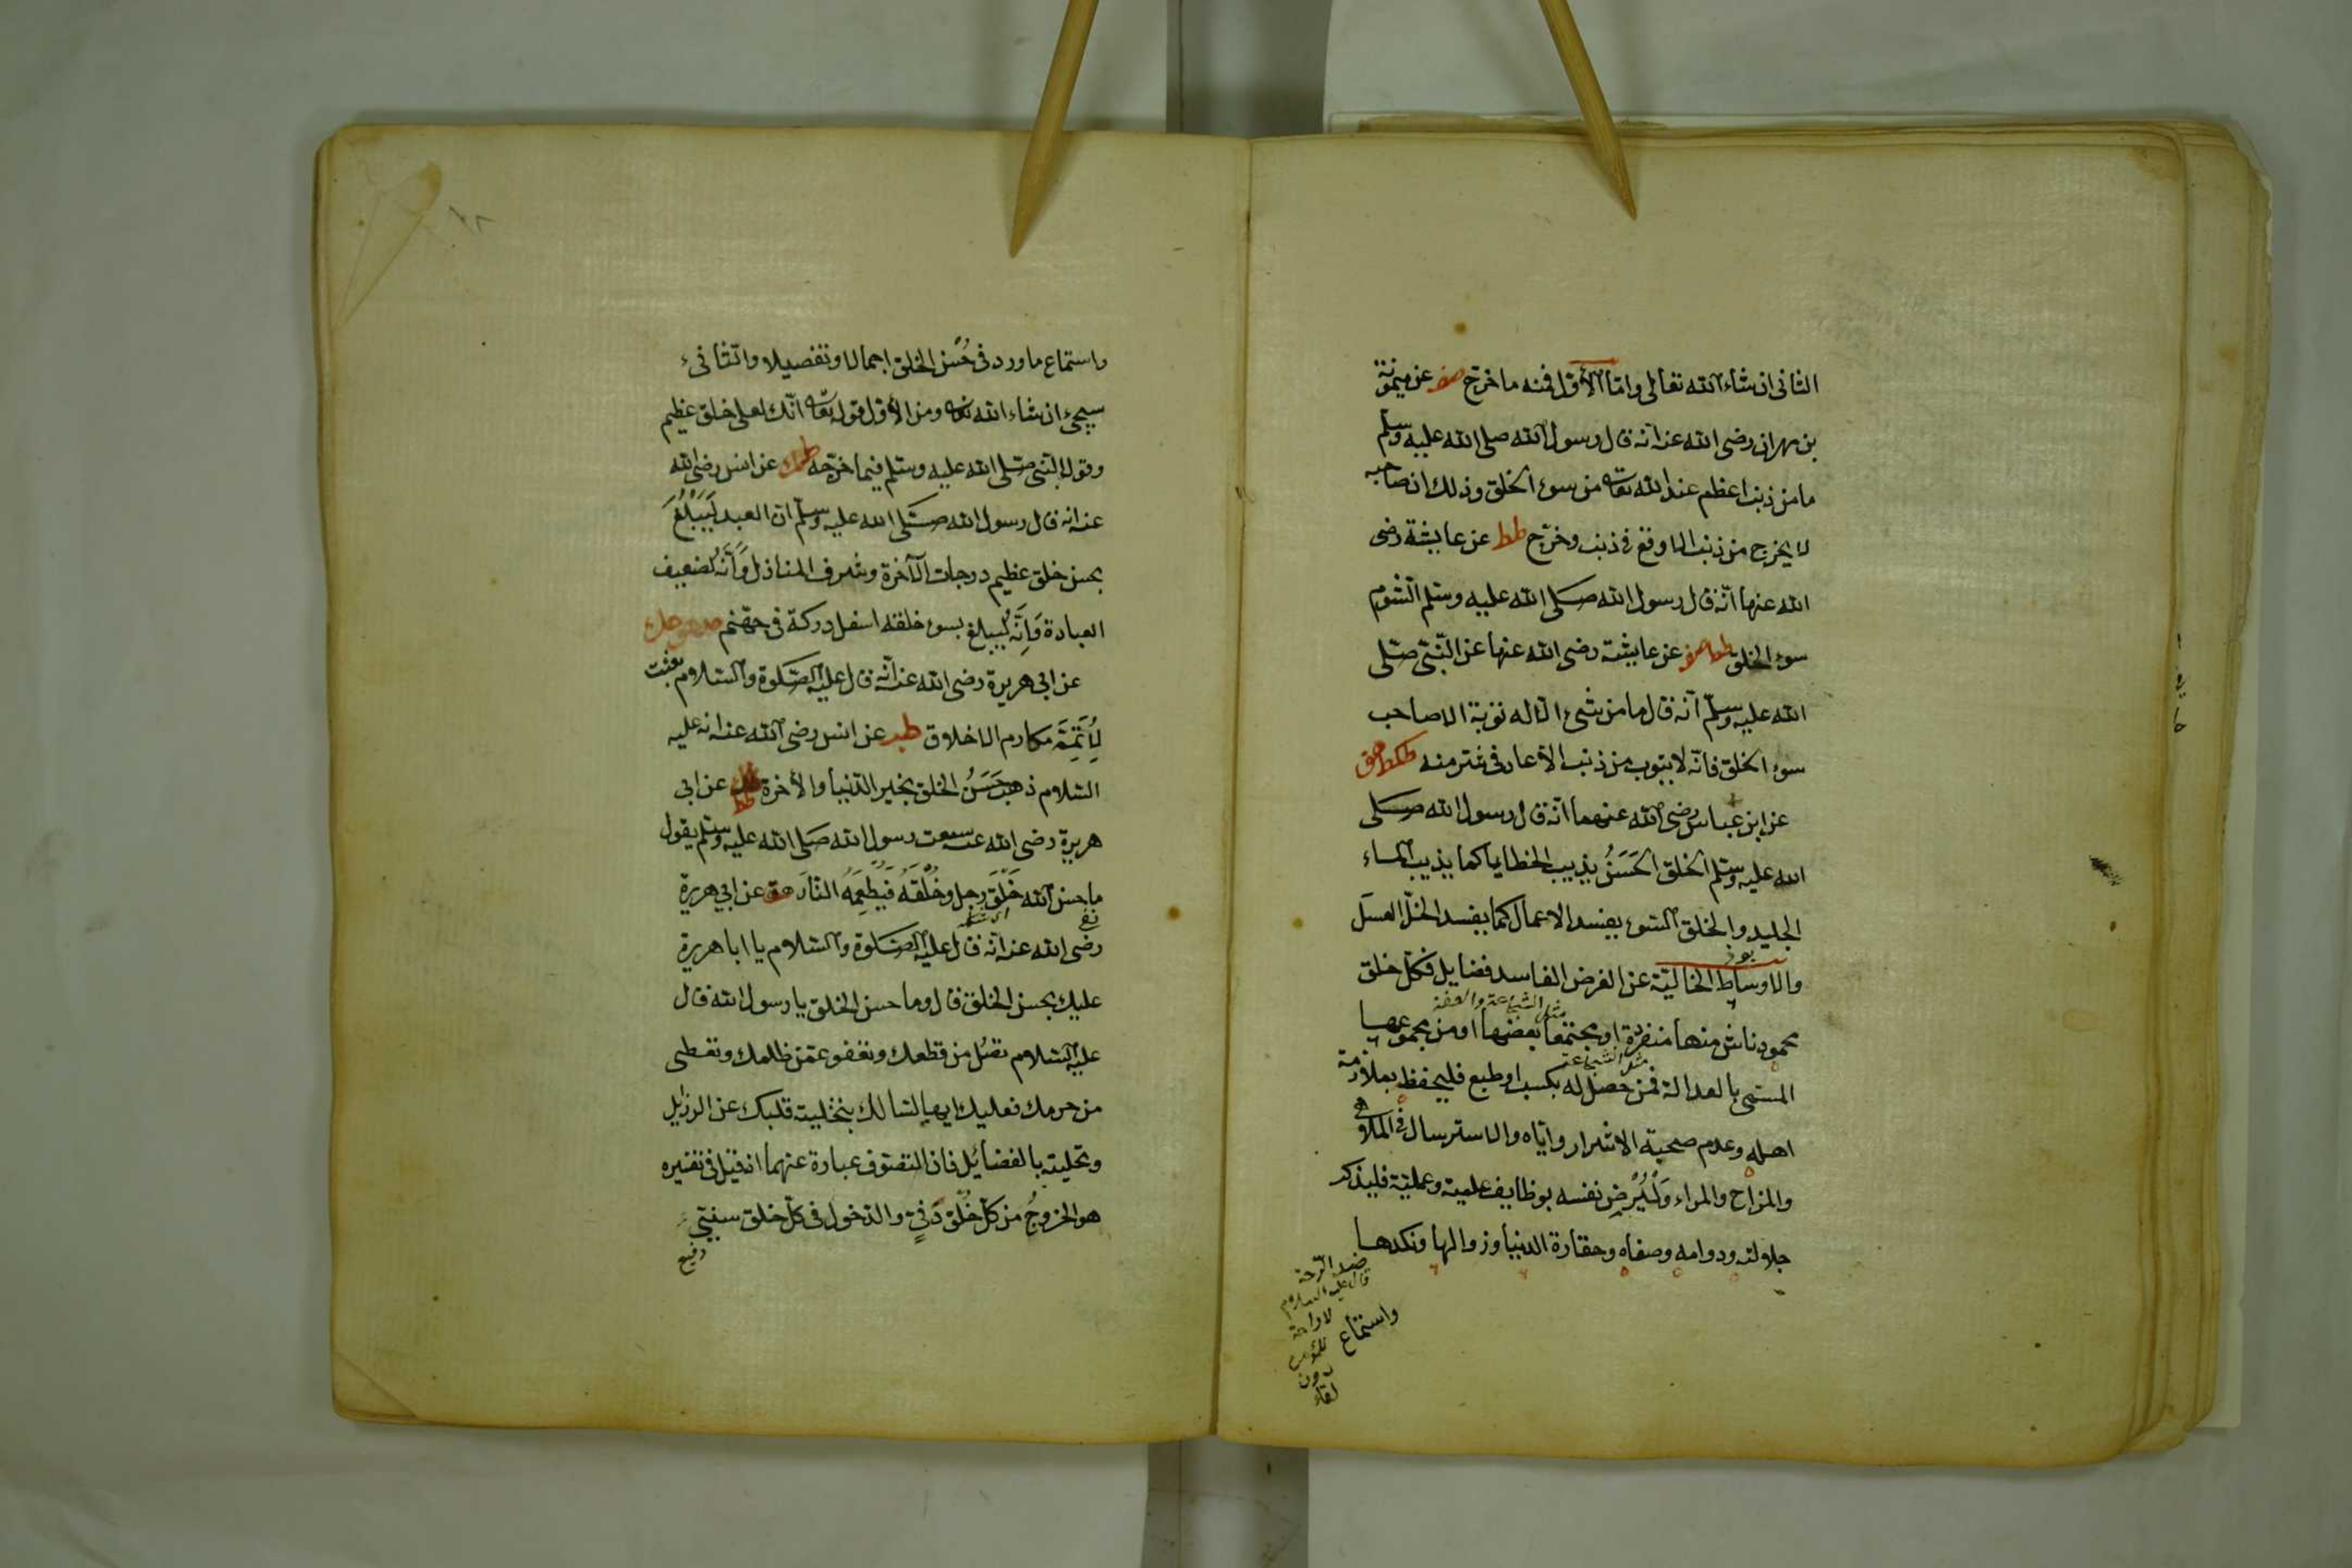 الثانى ان شاء الله تعالى واما الأول فمنه ما خرج صف عن ميمونة
بن مهران رضى الله عنه انه قال رسول الله صلى الله عليه وسلم
ما من ذنب اعظم عند الله تعا من سوء الخلق وذلك ان صاحبه
لا يخرج من ذنب الا وقع فى ذنب وخرج طط عن عايشة رضى
الله عنها انه قال رسول الله صلى الله عليه وسلم الشوم
سوء الخلق طط صف عن عايشة رضى الله عنها عن النبى صلى
الله عليه وسلم انه قال ما من شىء الا له توبة الا صاحب
سوء الخلق فانه لا يتوب من ذنب الا عاد فى شر منه طكط هق
عن ابن عباس رضى الله عنهما انه قال رسول الله صلى
الله عليه وسلم الخلق الحسن يذيب الخطايا كما يذيب الماء
الجليد والخلق السوء يفسد الاعمال كما يفسد الخل العسل
والاوساط الخالية عن الغرض الفاسد فضايل فكل خلق
مثل الشجاعة والعفة
محمود ناش منها منفردة او مجتمعا بعضها او من مجموعها
مثل الشجاعة
المسمى بالعدالة فمن حصل له بكسب او طبع فليحفظ بملازمة
اهله وعدم صحبة الاشرار واياه والاسترسال فى الملاهى
والمزاح والمراء وليرض نفسه بوظايف علمية وعملية فليذكر
جلالته ودوامه وصفاه وحقارة الدنيا وزوالها ونكدها
ضد الرحة
قال عليه السلام
لا راحة
للمؤمن
دون
لقاء
واستماع
واستماع ما ورد فى حسن الخلق اجمالا وتفصيلا والثانىء
سيجئ ان شاء الله تعا ومن الأول قوله تعا انك لعلى خلق عظيم
وقول النبى صلى الله عليه وسلم فيما خرجه طك عن انس رضى الله
عنه انه قال رسول الله صلى الله عليه وسلم ان العبد ليبلغ
بحسن خلق عظيم درجات الآخرة وشرف المنازل وانه لضعيف
العبادة وانه ليبلغ بسوء خلقه اسفل دركة فى جهنم
عن ابى هريرة رضى الله عنه انه قال عليه الصلوة والسلام بعثت
لأتمم مكارم الاخلاق طبر عن انس رضى الله عنه انه عليه
السلام ذهب حسن الخلق بخير الدنيا والأخرة طط عن ابى
هريرة رضى الله عنه سمعت رسول الله صلى الله عليه وسلم يقول
ما حسن الله خلق رجل وخلقه فيطعمه النار هق عن ابى هريرة
رضى الله عنه انه قال عليه الصلوة والسلام يا ابا هريرة
عليك بحسن الخلق قال وما حسن الخلق يا رسول الله قال
عليه السلام تصل من قطعك وتعفو عمن ظلمك وتعطى
من حرمك فعليك ايها السالك بتخلية قلبك عن الرذايل
وتحليته بالفضائل فان التصوف عبارة عنهما اذ قيل فى تفسيره
هو الخروج من كل خلق دني والدخول فى كل خلق سني
رفيع